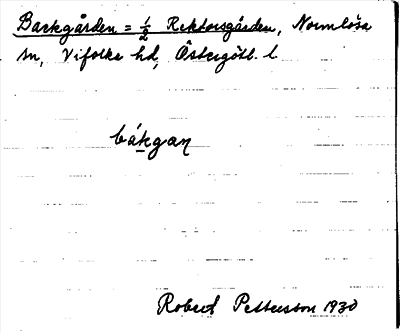 Backgården = 1/2 Rektorsgården, Normlösa
sn, Vifolke hd, Östergötl. l.
bákgan
Robert Pettersson 1930